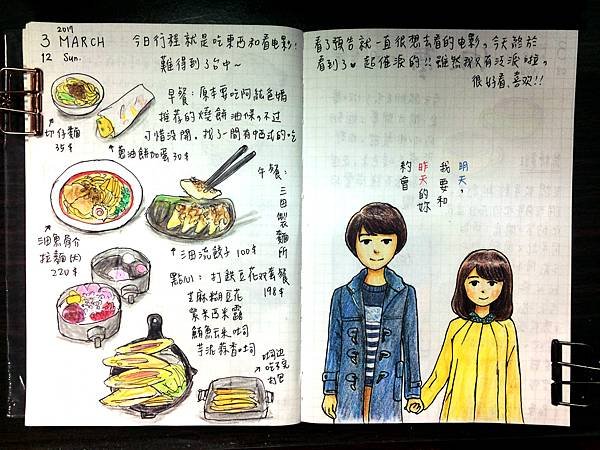 2017
3 MARCH
12 Sun.
今日行程就是吃東西和看電影!
難得到了台中~
早餐:原本要吃阿
推荐的燒餅油條,不过
可惜没開,找了一間有中西式的吃
切仔麵
35$
蔥油餅加蛋 30$
午餐:
三田製麵所
油魚介
拉麵(大)
220$
三田流餃子 100$
點心:打鉄豆花双套餐
198$
芝麻糊豆花
紫米西米露
鮪魚玉米吐司
芋泥蒜香吐司
吐司边
吃不完
打包
看了預告就一直很想去看的电影,今天終於
看到了♥ 超催淚的!!雖然我没有泛淚啦。
很好看、喜欢!!
明天,
我要和
昨天的妳
約會